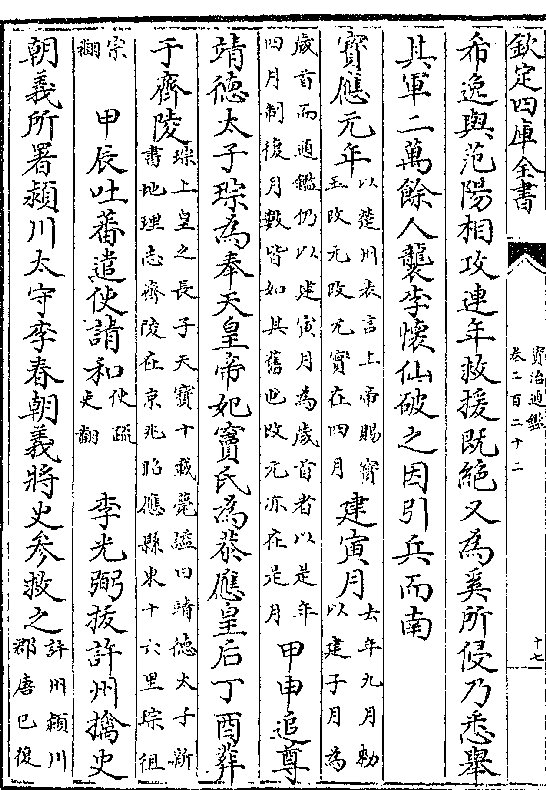 欽定四庫全書
資治通鑑
卷二百二十二
十七
希逸與范陽相攻連年救援既絕又為奚所侵乃悉舉
其軍二萬餘人襲李懷仙破之因引兵而南
寶應元年以楚州表言上帝賜寶玉改元改元實在四月建寅月去年九月勅以建子月為
歲首而通鑑仍以建寅月為歲首者以是年四月制復月數皆如其舊也改元亦在是月甲申追尊
靖德太子琮為奉天皇帝妃竇氏為恭應皇后丁酉葬
于齊陵琮上皇之長子天寶十載薨諡曰靖德太子新書地理志齊陵在京兆昭應縣東十六里琮徂
宗翻甲辰吐蕃遣使請和使疏吏翻李光弼拔許州擒史
朝義所署潁川太守李春朝義將史參救之許州潁川郡唐已復